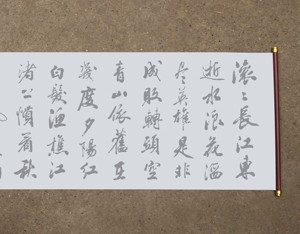 滚〻長江東
逝水浪花淘
尽英雄是非
成敗轉頭空
青山依舊在
幾度夕陽紅
白髮渔樵江
渚上慣看秋